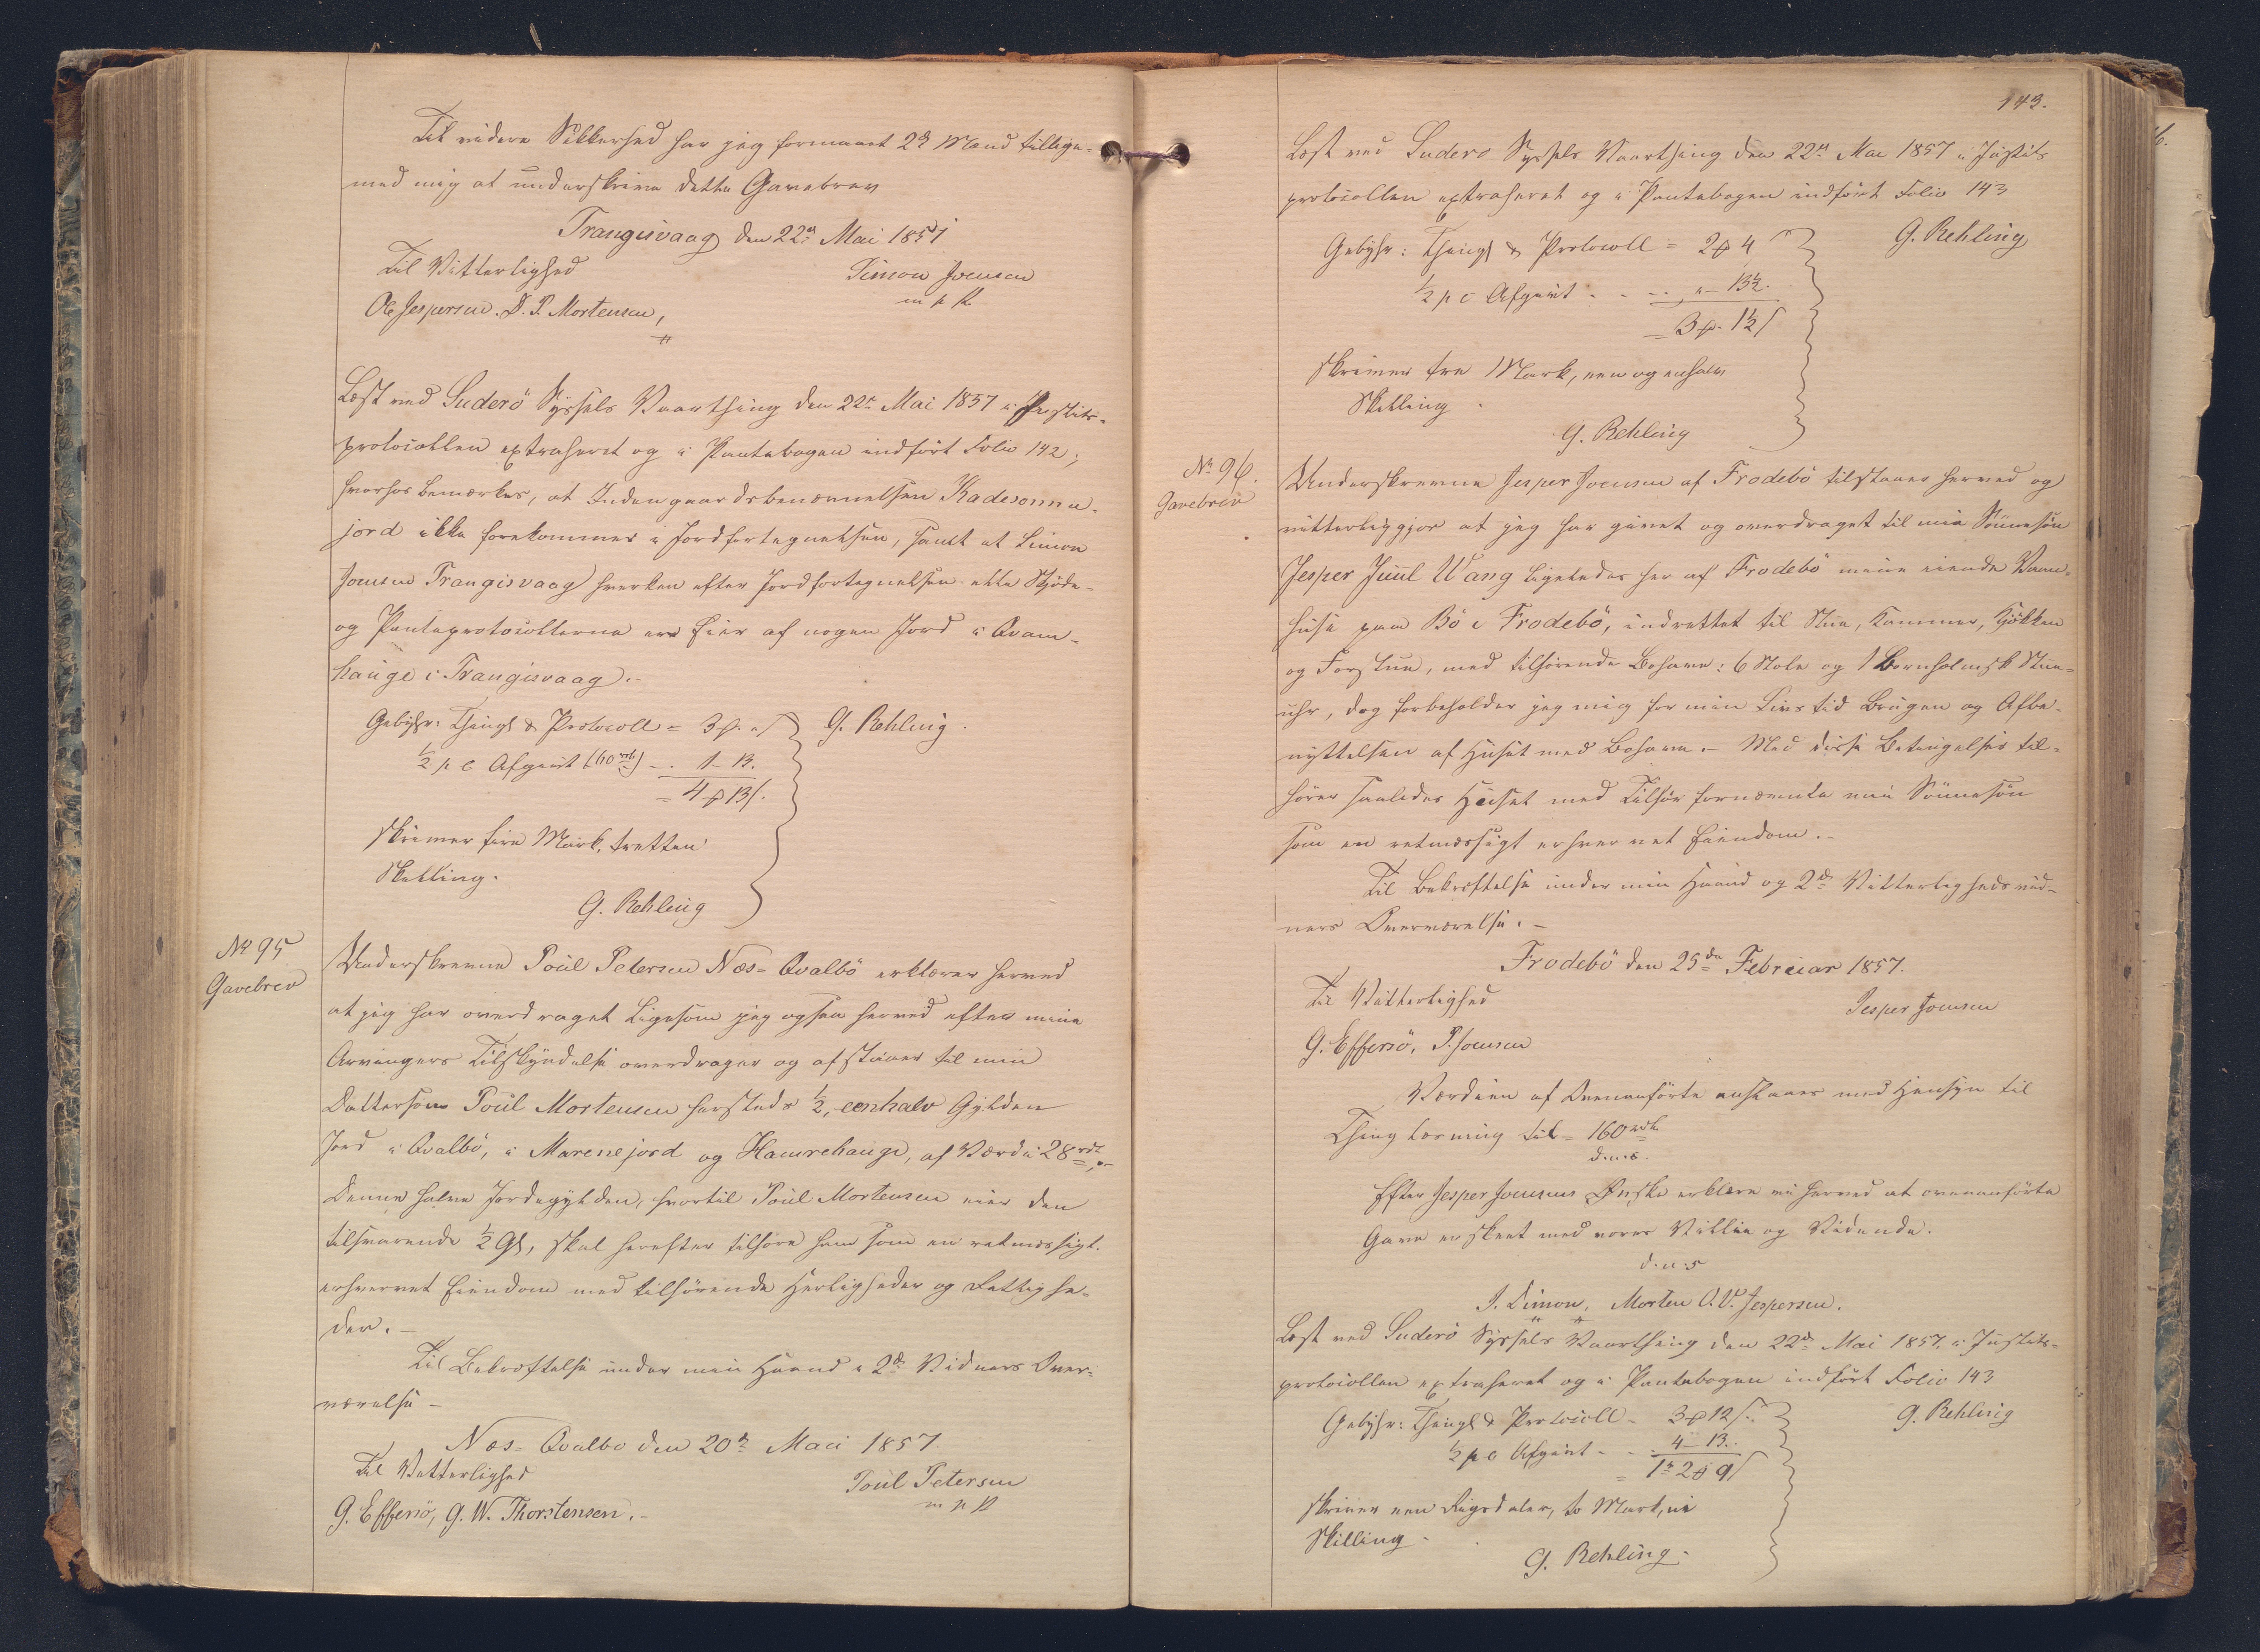 Til videre Sikkerhed har jeg formaaet 2de Mænd tillige-
med mig at underskrive dette Gavebrev
Trangisvaag den 22de Mai 1857
Til Vitterlighed
Simon Joensen
m p p
Ole Jespersen. D. P. Mortensen,
Læst ved Suderö Syssels Vaarthing den 22de Mai 1857 i Justits-
protocollen extraheret og i Pantebogen indfört Folio 142;
hvorhos bemærkes, at Indengaardsbenævnelsen Kadesonne-
jord ikke forekommer i Jordfortegnelsen, samt at Simon
Joensen Trangisvaag hverken efter Jordfortegnelsen eller Skjöde-
og Panteprotocollerne er Eier af nogen Jord i Qvam-
hauge i Trangisvaag.
Gebyhr: Thingl & Protocoll = 3 ß
G. Rehling.
½ p C Afgivt (60 rd) - 1 - 13.
= 4 13 ß.
skriver fire Mark, tretten
Skilling.
G. Rehling
No 95
Gavebrev
Underskrevne Poul Petersen Næs-Qvalbö erklærer herved
at jeg har overdraget ligesom jeg ogsaa herved efter mine
Arvingers Tilskyndelse overdrager og afstaaer til min
Dattersøn Poul Mortensen hersteds ½, eenhalv Gylden
Jord i Qvalbö, i Marenejord og Hamrehauge, af Værdi 28 rdl,
Denne halve Jordegylden, hvortil Poul Mortensen eier den
tilsvarende ½ Gl, skal herefter tilhöre ham som en retmæssigt
erhvervet Eiendom med tilhörende Herligheder og Rettighe-
der. -
Til Bekræftelse under min Haand i 2de Vidners Over-
værelse -
Næs-Qvalbo den 20de Mai 1857
Til Vitterlighed
Poul Petersen
m p p
G. Effersö, G. W. Thorstensen. -
143.
Læst ved Suderö Syssels Vaarthing den 22de Mai 1857 i Justits
protocollen extraheret og i Pantebogen indfört Folio 143
G. Rehling
Gebyhr: Thingl & Protocoll = 2 4 ß
½ p C Afgivt - - - 13½.
= 3 1½ ß
skriver tre Mark, een og enhalv
Skilling.
G. Rehling
No 96.
Gavebrev
Underskrevne Jesper Joensen af Frodebö tilstaaer herved og
vitterliggjør at jeg har givet og overdraget til min Sönnesön
Jesper Juul Wang ligeledes her af Frodebö mine eiende Vaan-
huse paa Bö i Frodebö, indrettet til Stue, Kammer, Kjökken
og Forstue, med tilhörende Bohave: 6 Stole og 1 Bornholmsk Stue-
uhr, dog forbeholder jeg mig for min Livs tid Brugen og Afbe-
nyttelsen af Huset med Bohave. - Med disse Betingelser til-
hörer saaledes Huset med Tilhör fornævnte min Sönnesön
som en retmæssigt erhvervet Eiendom. -
Til Bekræftelse under min Haand og 2de Vitterligheds vid-
ners Overværelse. -
Frodebö den 25de Februar 1857.
Til Vitterlighed
Jesper Joensen
G. Effersö. P. Joensen
Værdien af Ovenanförte anslaaes med Hensyn til
Thinglæsning til = 160 rdl.
d.u.s.
Efter Jesper Joensens Ønske erklære vi herved at ovenanförte
Gave er skeet med vores Villie og Vidende.
d.u.s
J. Dimon, Morten O. V. Jespersen.
Læst ved Suderö Syssels Vaarthing den 22de Mai 1857, i Justits-
protocollen extraheret og i Pantebogen indfört Folio 143
G. Rehling
Gebyhr: Thingl & Protocoll - 3 12 ß.
½ p C Afgivt - - 4 - 13.
= 1 rd 2 9 ß
skriver een Rigsdaler, to Mark, ni
Skilling.
G. Rehling.